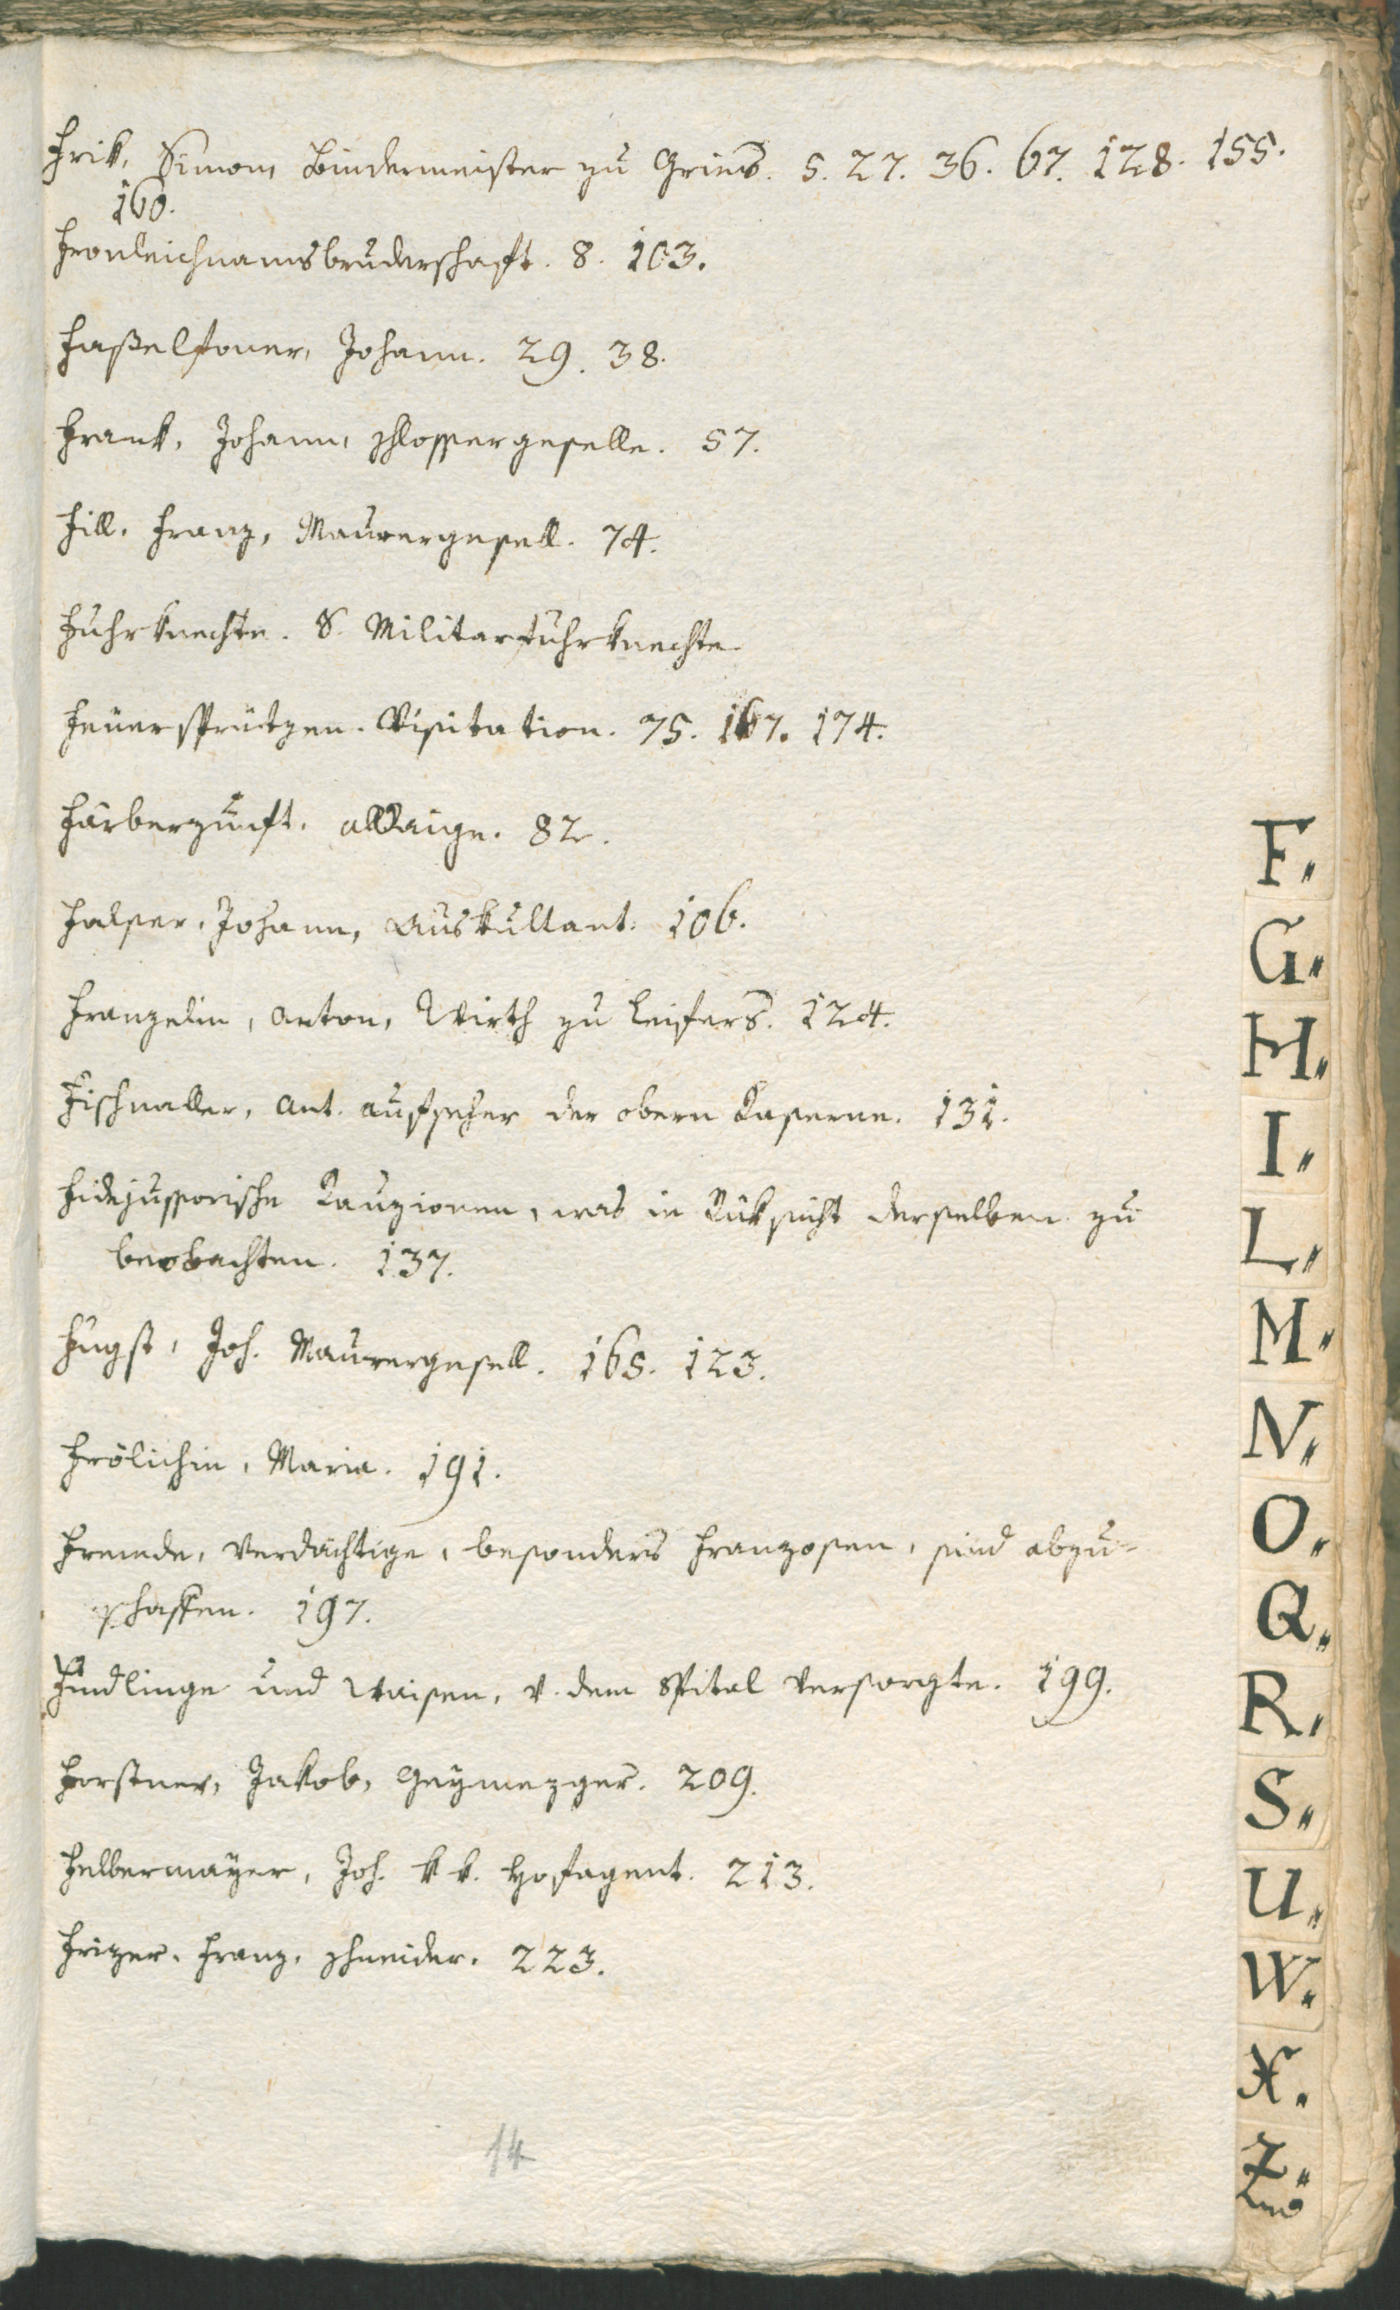 Frik, Simon, Bindermeister zu Gries. 5. 27. 36. 67. 128. 155.
160.
Fronleichnamsbruderschaft. 8. 103.
Faßelfoner, Johann. 29. 38.
Frank, Johann, Schlossergeselle. 57.
Fill, Franz, Maurergesell. 74.
Fuhrknechte. S. Militarfuhrknechte.
Feüersprützen-Visitation. 75. 167. 174.
Färberzunft, allhige. 82.
Falser, Johann, Auskultant. 106.
Franzelin, Anton, Wirth zu Leifers. 124.
Fischnaller, Ant. Aufseher der obern Kaserne. 131.
Fidejussorische Kauzionen, was in Rüksicht derselben zu
beobachten. 137.
Füngst, Joh. Maurergesell. 165. 123.
Frölichin, Maria. 191.
Fremde, verdächtige, besonders Franzosen, sind abzu-
schaffen. 197.
Findlinge und Waisen, v. dem Spital versorgte. 199.
Forstner, Jakob, Geymezger. 209.
Felbermayer, Joh. k k. Hofagent. 213.
Frizer, Franz, Schneider. 223.
14
F.
G.
H.
I.
L.
M.
N.
O.
Q.
R.
S.
U.
W.
X.
Z.